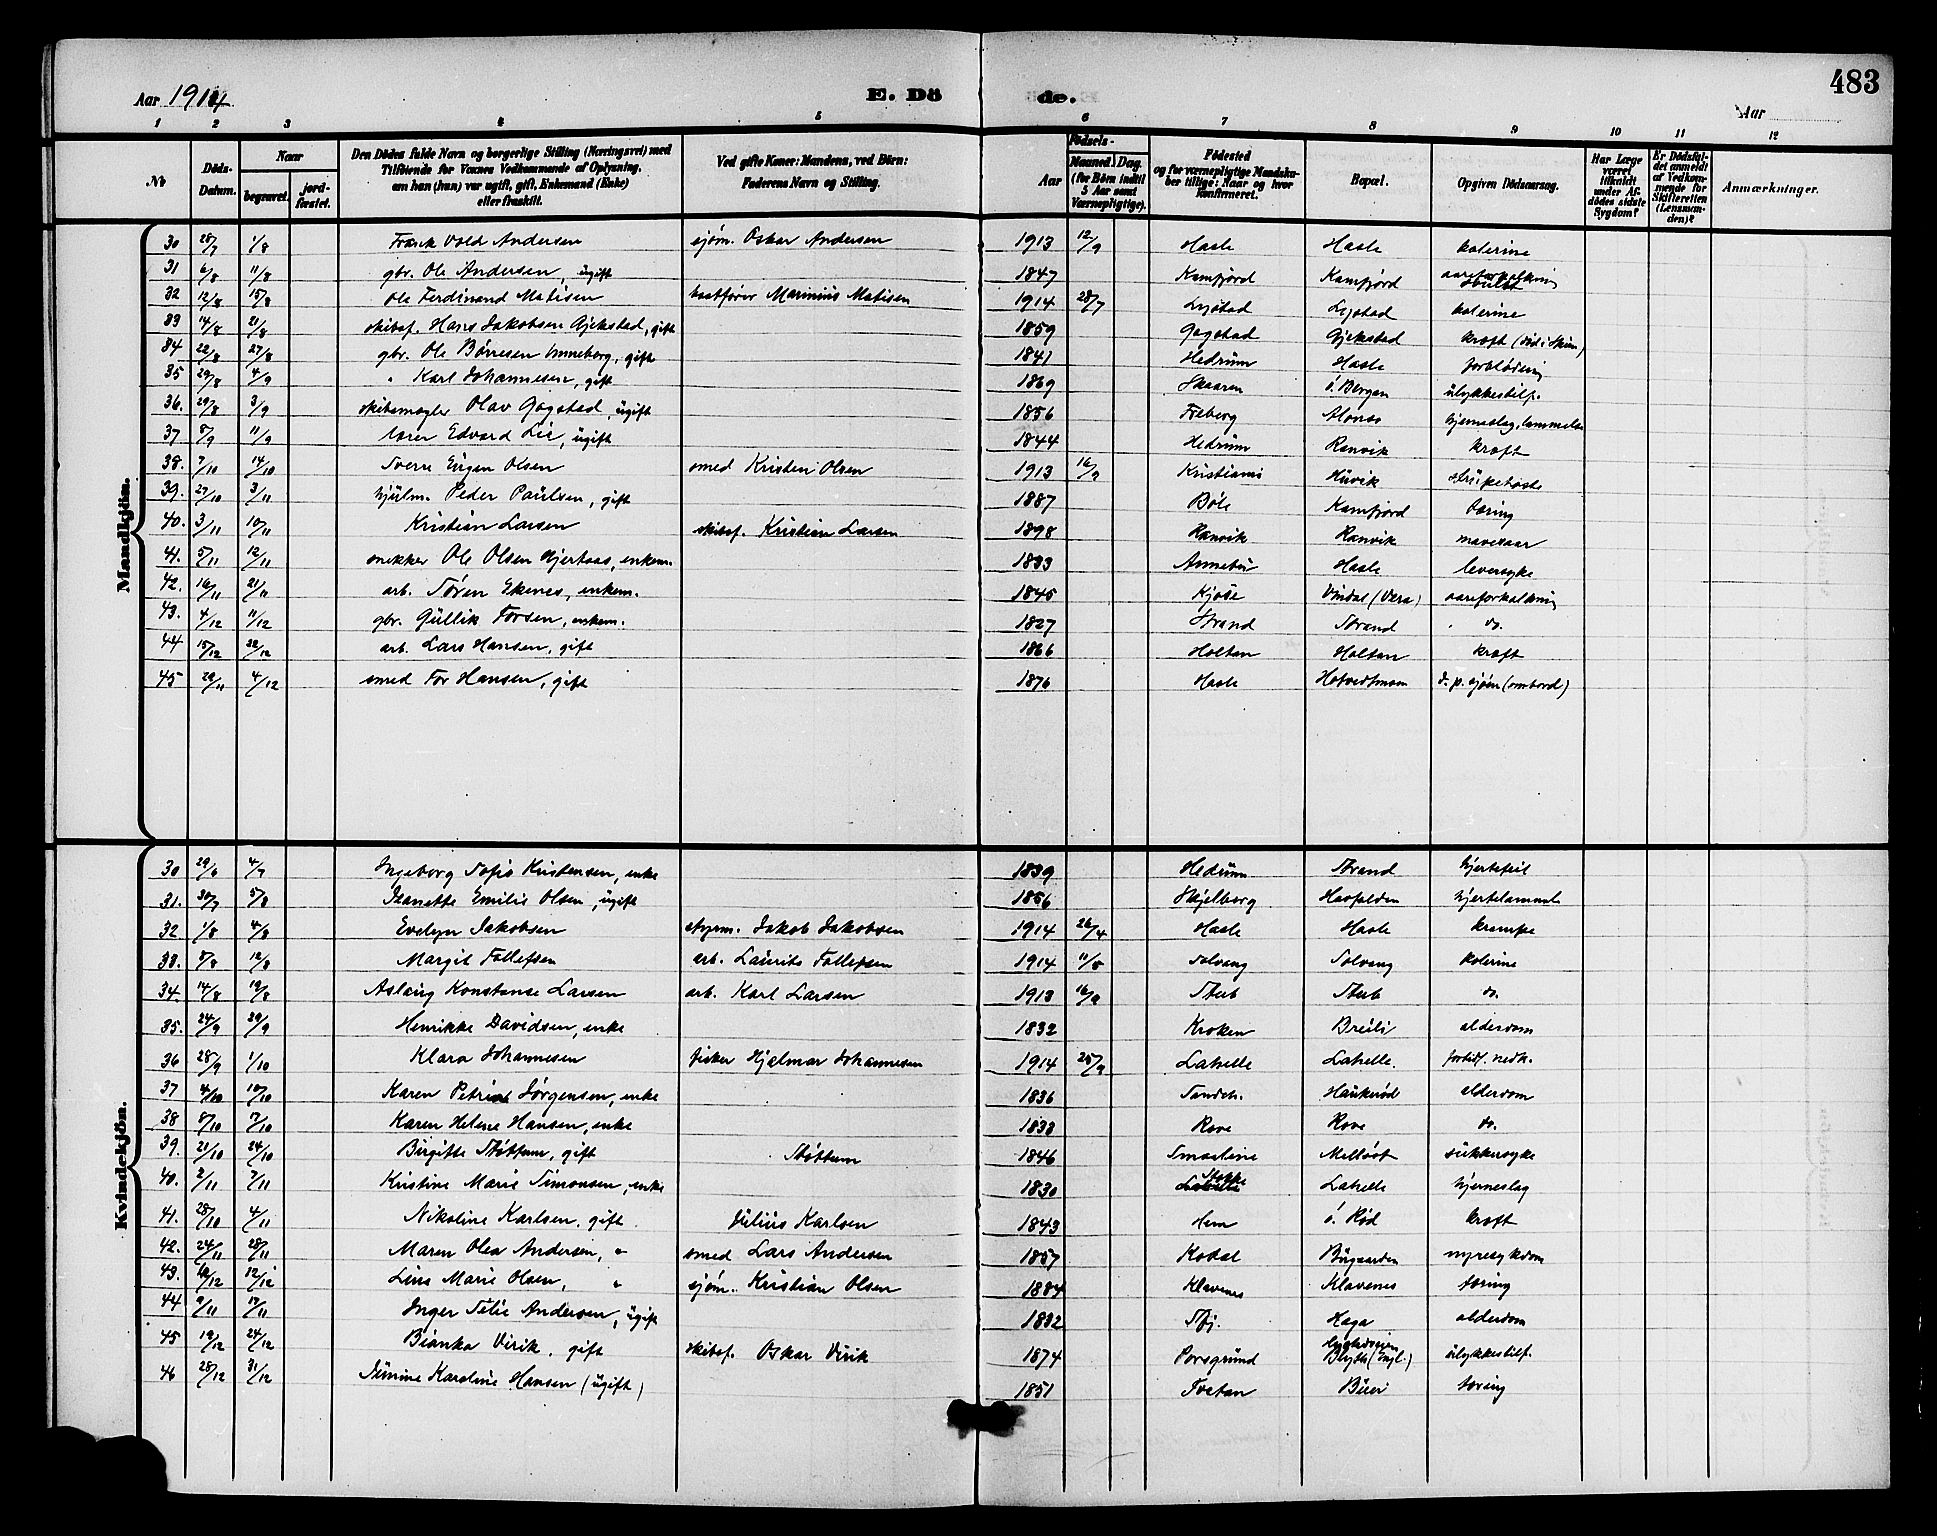 Aar 1914
E. Döde.
Aar
483
1 2 3 4 5 6 7 8 9 10 11 12
No
Döds-Datum.
Naar
begravet.
jord-fæstet.
Den Dödes fulde Navn og borgerlige Stilling (Næringsvei) med
Tilföiende for Voxnes Vedkommende af Oplysning,
om han (hun) var ugift, gift, Enkemand (Enke)
eller fraskilt.
Ved gifte Koner: Mandens, ved Börn:
Faderens Navn og Stilling.
Födsels-
Aar
Maaned. Dag.
(for Börn indtil
5 Aar samt
Værnepligtige).
Födested
og for værnepligtige Mandska-
ber tillige: Naar og hvor
konfirmeret.
Bopæl.
Opgiven Dödsaarsag.
Har Læge
været
tilkaldt
under Af-
dödes sidste
Sygdom?
Er Dödsfal-
det anmeldt
af Vedkom-
mende for
Skifteretten
(Lensman-
den)?
Anmærkninger.
Mandkjön.
30 28/7 1/8 Frank Vold Andersen sjøm. Oskar Andersen 1913 12/9 Hasle Hasle kolerine
31 6/8 11/8 gbr. Ole Andersen, ugift 1847 Kamfjord Kamfjord aareforkalkning
32 12/8 15/8 Ole Ferdinand Matisen baatfører Marinius Matisen 1914 28/7 Lystad Lystad kolerine
33 14/8 21/8 skibsf. Hans Jakobsen Gjekstad, gift 1859 Gogstad Gjekstad kræft (død i Skien)
34 22/8 27/8 gbr. Ole Børresen Unneberg, gift 1841 Hedrum Hasle forblødning
35 29/8 4/9 " Karl Johannesen, gift 1869 Skaaren ö. Bergan ulykkestilf.
36. 29/8 3/9 skibsmægler Olav Gogstad, ugift 1856 Freberg hjerneslag, lammelse
37 8/9 11/9 lærer Edvard Lie, ugift 1844 Hedrum Ranvik kræft
38. 7/10 14/10 Sverre Eugen Olsen smed Kristen Olsen 1913 16/9 Kristiania Huvik strupehoste
39. 27/10 3/11 hjulm. Peder Paulsen, gift 1887 Bøle Kamfjord tæring
40. 3/11 10/11 Kristian Larsen skibsf. Kristian Larsen 1898 Ranvik Ranvik mavesaar
41. 5/11 12/11 snekker Ole Olsen Hjertaas, enkem. 1833 Annebu Hasle leversyke
42. 16/11 21/11 arb. Søren Ekenes, enkem. 1845 Kjose Vindal (Vera) aareforkalkning
43. 4/12 11/12 gbr. Gullik Torsen, enkem. 1827 Strand Strand do.
44 15/12 22/12 arb. Lars Hansen, gift 1866 Holtan Holtan kræft
45 29/11 4/12 smed Tor Hansen, gift 1876 Hasle d. p. sjøen (ombord)
Kvindekjön.
30 29/6 4/7 Ingeborg Sofie Kristensen, enke 1839 Hedrum Strand hjertefeil
31. 30/7 5/8 Jeanette Emilie Olsen, ugift 1856 Skjelborg hjertelammelse
32 1/8 4/8 Evelyn Jakobsen styrm. Jakob Jakobsen 1914 26/4 Hasle Hasle krampe
33. 8/8 12/8 Margit Tollefsen arb. Laurits Tollefsen 1914 11/5 Solvang Solvang kolerine
34 14/8 19/8 Aslaug Konstanse Larsen arb. Karl Larsen 1913 16/9 Stub Stub do.
35. 24/9 29/9 Henrikke Davidsen, enke 1832 Kroken Breili alderdom
36 28/9 1/10 Klara Johannesen fisker Hjalmar Johannesen 1914 25/9 Lahelle Lahelle. fortidl. nedk.
37 4/10 10/10 Karen Petrine Jørgensen, enke 1836 Sandeh. Haukerød alderdom
38 8/10 7/10 Karen Helene Hansen, enke 1833 Rove Rove do.
39. 21/10 24/10 Birgitte Støttum, gift Støttum 1846 Smaalene Melløst sukkersyke
40. 2/11 7/11 Kristine Marie Simonsen, enke 1830 Stokke Lahelle hjerneslag
41. 28/10 4/11 Nikoline Karlsen, gift. Julius Karlsen 1843 Hem ö. Rød kræft
42. 24/11 28/11 Maren Olea Andersen, " smed Lars Andersen 1857 Kodal Bugaarden nyresykdom
43. 12/12 Lina Marie Olsen, " sjøm. Kristian Olsen 1884 Klavenes Klavenes tæring
44 9/11 17/11 Inger Selie Andersen, ugift 1832 Stfj. Haga alderdom
45 19/12 24/12 Bianka Virik, gift skibsf. Oskar Virik 1874 Porsgrund Blyth (Engl.) ulykkestilf.
46 28/12 31/12 Karoline Hansen (ugift) 1851 Tvetan Buer tæring